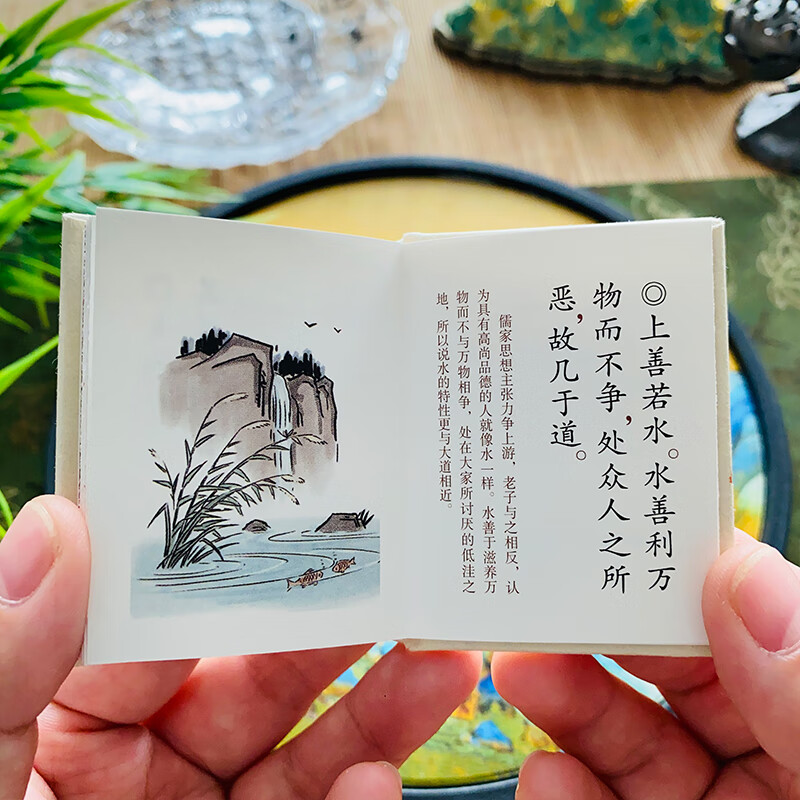 ◎上善若水。水善利万
物而不争,处众人之所
恶,故几于道。
儒家思想主张力争上游,老子与之相反,认
为具有高尚品德的人就像水一样。水善于滋养万
物而不与万物相争,处在大家所讨厌的低洼之
地,所以说水的特性更与大道相近。